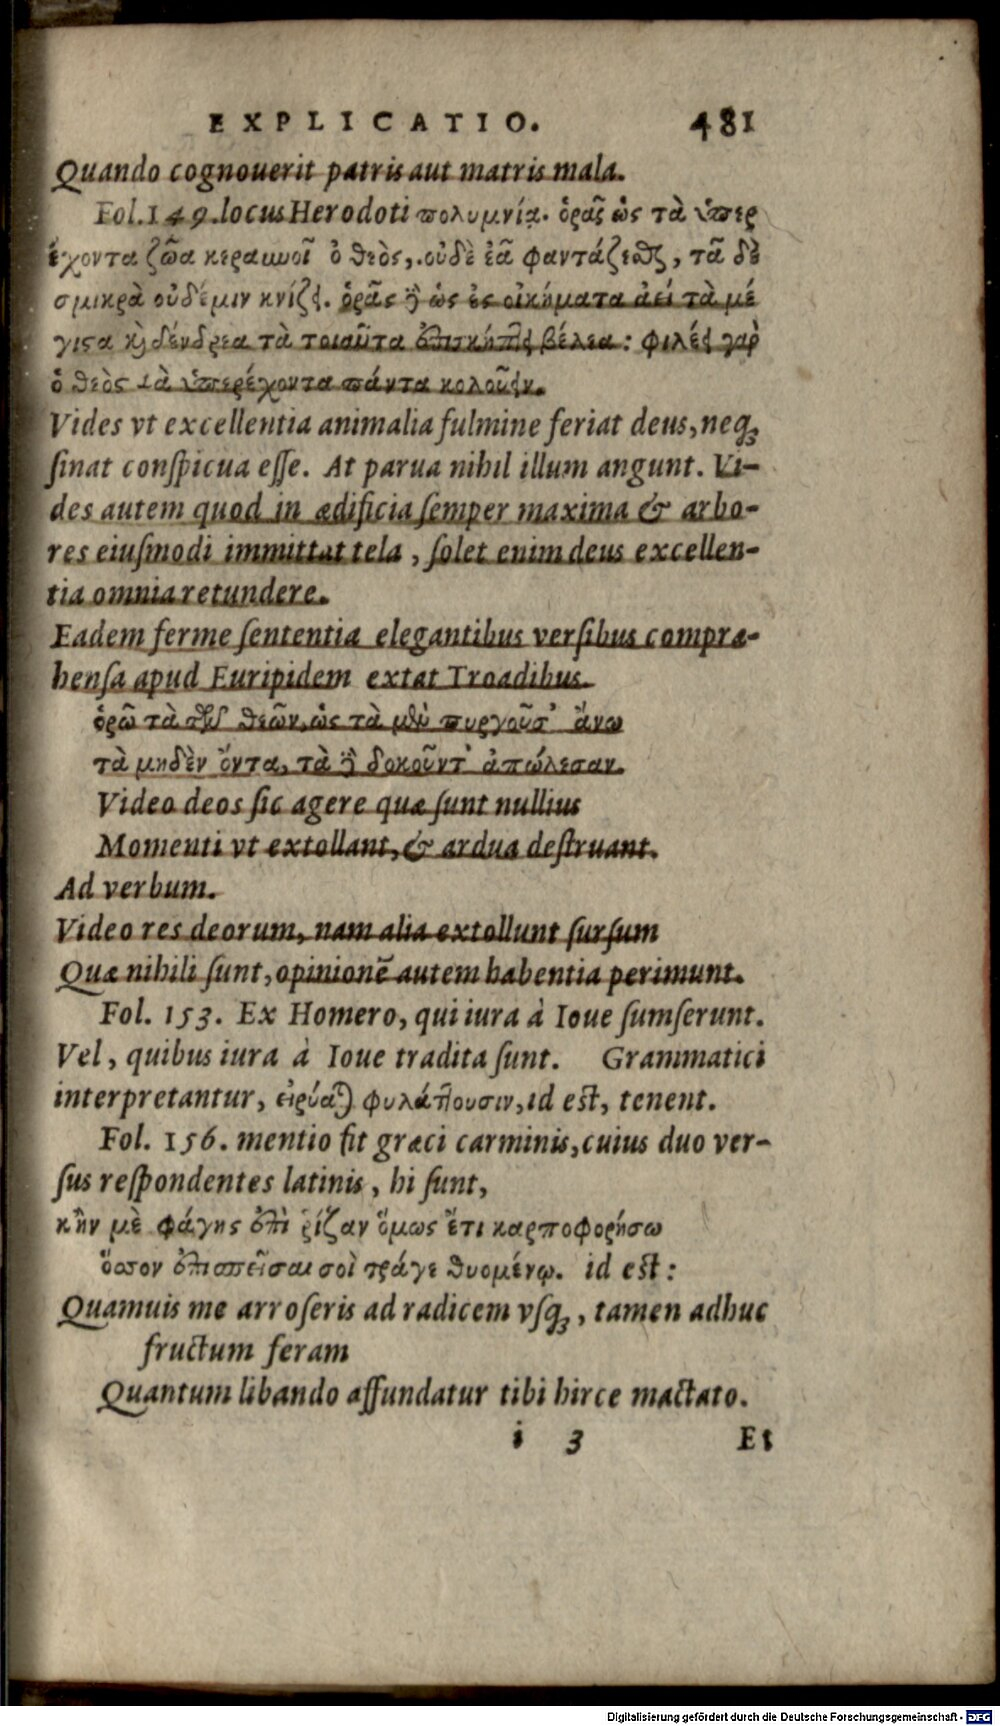 EXPLICATIO. 481
Quando cognouerit patris aut matris mala.
Fol.149.locus Herodoti πολυμνίᾳ. ὁρᾷς ὡς τὰ ὑπερ
έχοντα ζῶα κεραυνοῖ ὁ θεὸς, οὐδὲ ἐᾷ φαντάζεσθαι, τᾶ δὲ
σμικρὰ οὐδέμιν κνίζει. ὁρᾷς δὲ ὡς ἐς οἰκήματα ἀεὶ τὰ μέ
γιστα καὶ δένδρεα τὰ τοιαῦτα ἐπισκήπτει βέλεα: φιλέει γαρ
ὁ θεὸς τὰ ὑπερέχοντα πάντα κολούειν.
Vides vt excellentia animalia fulmine feriat deus, neqꝫ
ſinat conſpicua eſſe. At parua nihil illum angunt. Vi-
des autem quod in ædificia ſemper maxima & arbo-
res eiuſmodi immittat tela, ſolet enim deus excellen-
tia omnia retundere.
Eadem ferme ſententia elegantibus verſibus compræ-
henſa apud Euripidem extat Troadibus.
ὁρῶ τὰ τῶν θεῶν, ὡς τὰ μὲν πυργοῦσ' ἄνω
τὰ μηδὲν ὄντα, τὰ δὲ δοκοῦντ' ἀπώλεσαν.
Video deos ſic agere quæ ſunt nullius
Momenti vt extollant, & ardua deſtruant.
Ad verbum.
Video res deorum, nam alia extollunt ſurſum
Quæ nihili ſunt, opinionē autem habentia perimunt.
Fol. 153. Ex Homero, qui iura à Ioue ſumſerunt.
Vel, quibus iura à Ioue tradita ſunt. Grammatici
interpretantur, εἰρύαται φυλάττουσιν, id eſt, tenent.
Fol. 156. mentio fit græci carminis, cuius duo ver-
ſus reſpondentes latinis, hi ſunt,
κἢν μὲ φάγης ἐπὶ ῥίζαν ὅμως ἔτι καρποφορήσω
ὅσσον ἐπισπεῖσαι σοὶ τράγε θυομένῳ. id eſt:
Quamuis me arroſeris ad radicem vſqꝫ, tamen adhuc
fructum feram
Quantum libando affundatur tibi hirce mactato.
i 3 Et
Digitalisierung gefördert durch die Deutsche Forschungsgemeinschaft - DFG